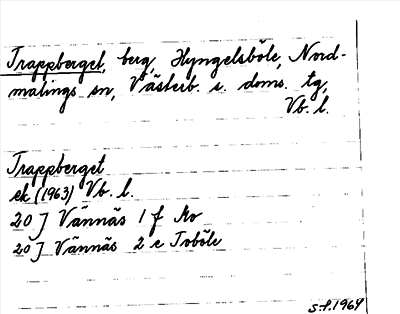 Trappberget, berg, Hyngelsböle, Nord-
malings sn, Västerb. s. doms. tg,
Vb. l.
Trappberget
ek (1963) Vb. l.
20 J Vännäs 1 f No
20 J Vännäs 2 e Toböle
S.f. 1969